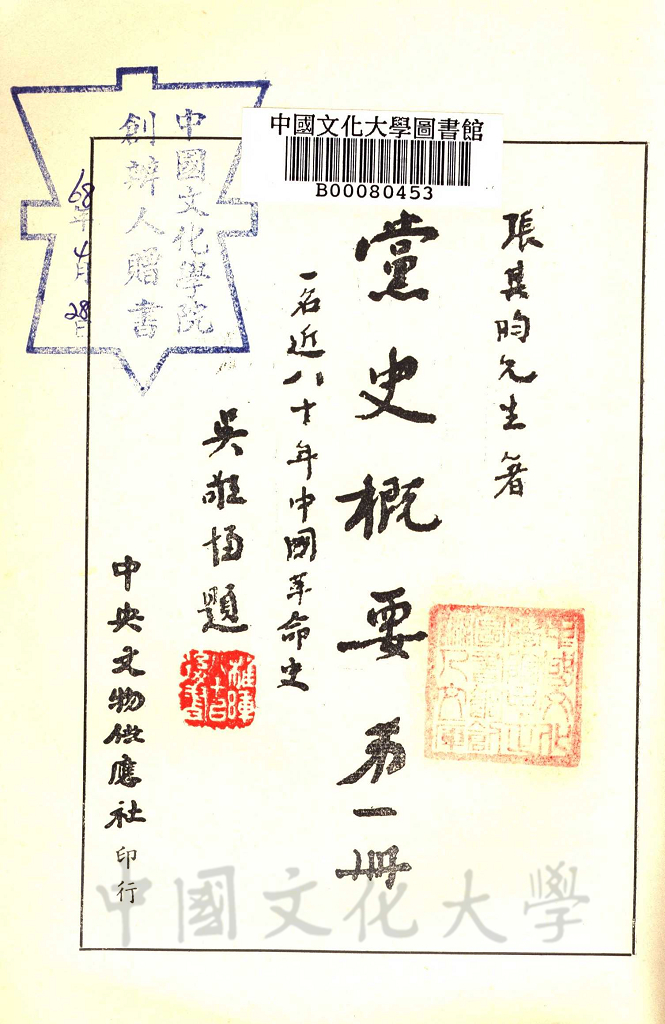 中國文化大學圖書館
B00080453
中國文化學院
創辦人贈書
68年4月28日
張其昀先生著
黨史概要 第一冊
一名近八十年中國革命史
吳敬恆題
中央文物供應社印行
中國文化大學